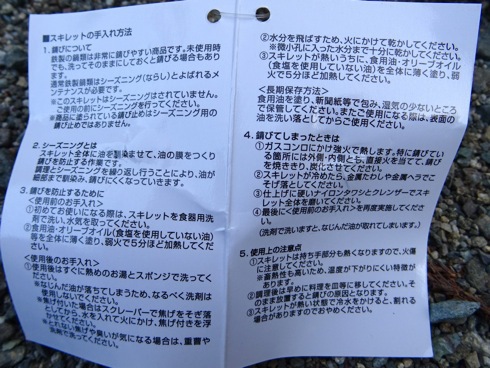 ■スキレットの手入れ方法
1. 錆びについて
鉄製の鍋類は非常に錆びやすい商品です。未使用時
でも、洗ってそのままにしておくと錆びる場合もあり
ます。
通常鉄製鍋類はシーズニング(ならし)とよばれるメ
ンテナンスが必要です。
※このスキレットはシーズニングはされていません。
ご使用の前にシーズニングを行ってください。
※商品に塗られている錆び止めはシーズニング用の
錆び止めではありません。
2. シーズニングとは
スキレット全体に油を馴染ませて、油の膜をつくり
錆びを防止する作業です。
調理とシーズニングを繰り返し行うことにより、油が
細部まで馴染み、錆びにくくなっていきます。
3. 錆びを防止するために
<使用前のお手入れ>
①初めてお使いになる際は、スキレットを食器用洗
剤で洗い、水気を取ってください。
②食用油・オリーブオイル(食塩を使用していない油)
等を全体に薄く塗り、弱火で5分ほど加熱してくだ
さい。
<使用後のお手入れ>
①使用後はすぐに熱めのお湯とスポンジで洗ってく
ださい。
※なじんだ油が落ちてしまうため、なるべく洗剤は
使用しないでください。
※焦げ付いた場合はスクレーパーで焦げをそぎ落
としてから、水を入れて火にかけ、焦げ付きを浮
かせてください。
※とれない焦げや臭いが気になる場合は、重曹や
洗剤で洗ってください。
②水分を飛ばすため、火にかけて乾かしてください。
※微小孔に入った水分まで十分に乾かしてください。
③スキレットが熱いうちに、食用油・オリーブオイル
(食塩を使用していない油)を全体に薄く塗り、弱
火で5分ほど加熱してください。
<長期保存方法>
食用油を塗り、新聞紙等で包み、湿気の少ないところ
で保管してください。またご使用になる際は、表面の
油を洗い落としてからご使用ください。
4. 錆びてしまったときは
①ガスコンロにかけ強火で熱します。特に錆びてい
る箇所には外側・内側とも、直接火を当てて、錆び
を焼ききり、炭化させてください。
②スキレットが冷めたら、金属たわしや金属ヘラでこ
そげ落としてください。
③仕上げに硬いナイロンタワシとクレンザーでスキレ
ット全体を磨いてください。
④最後に<使用前のお手入れ>を再度実施してくださ
い。
(洗剤で洗いますと、なじんだ油が取れてしまいます。)
5. 使用上の注意点
①スキレットは持ち手部分も熱くなりますので、火傷
に注意してください。
※蓄熱性も高いため、温度が下がりにくい特徴が
あります。
②調理後は早めに料理を皿等に移してください。そ
のまま放置すると錆びの原因となります。
③スキレットが熱い状態で冷水をかけると、割れる
場合がありますのでおやめください。